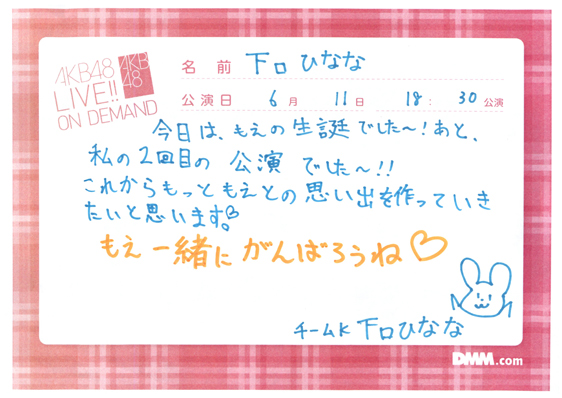 AKB48
LIVE!!
ON DEMAND
AKB
48
名前 下口ひなな
公演日 6月 11日 18:30公演
今日は、もえの生誕でした〜!あと、
私の2回目の公演でした〜!!
これからもっともえとの思い出を作っていき
たいと思います。♡
もえ一緒にがんばろうね♡
チームK 下口ひなな
DMM.com